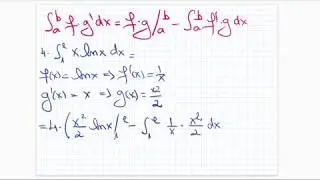 ∫ₐᵇ f·g' dx = f·g /ₐᵇ − ∫ₐᵇ f'·g dx
4·∫₁ᵉ x ln x dx =
f(x) = ln x ⇒ f'(x) = 1/x
g'(x) = x ⇒ g(x) = x²/2
= 4·(x²/2 ln x /₁ᵉ − ∫₁ᵉ 1/x · x²/2 dx